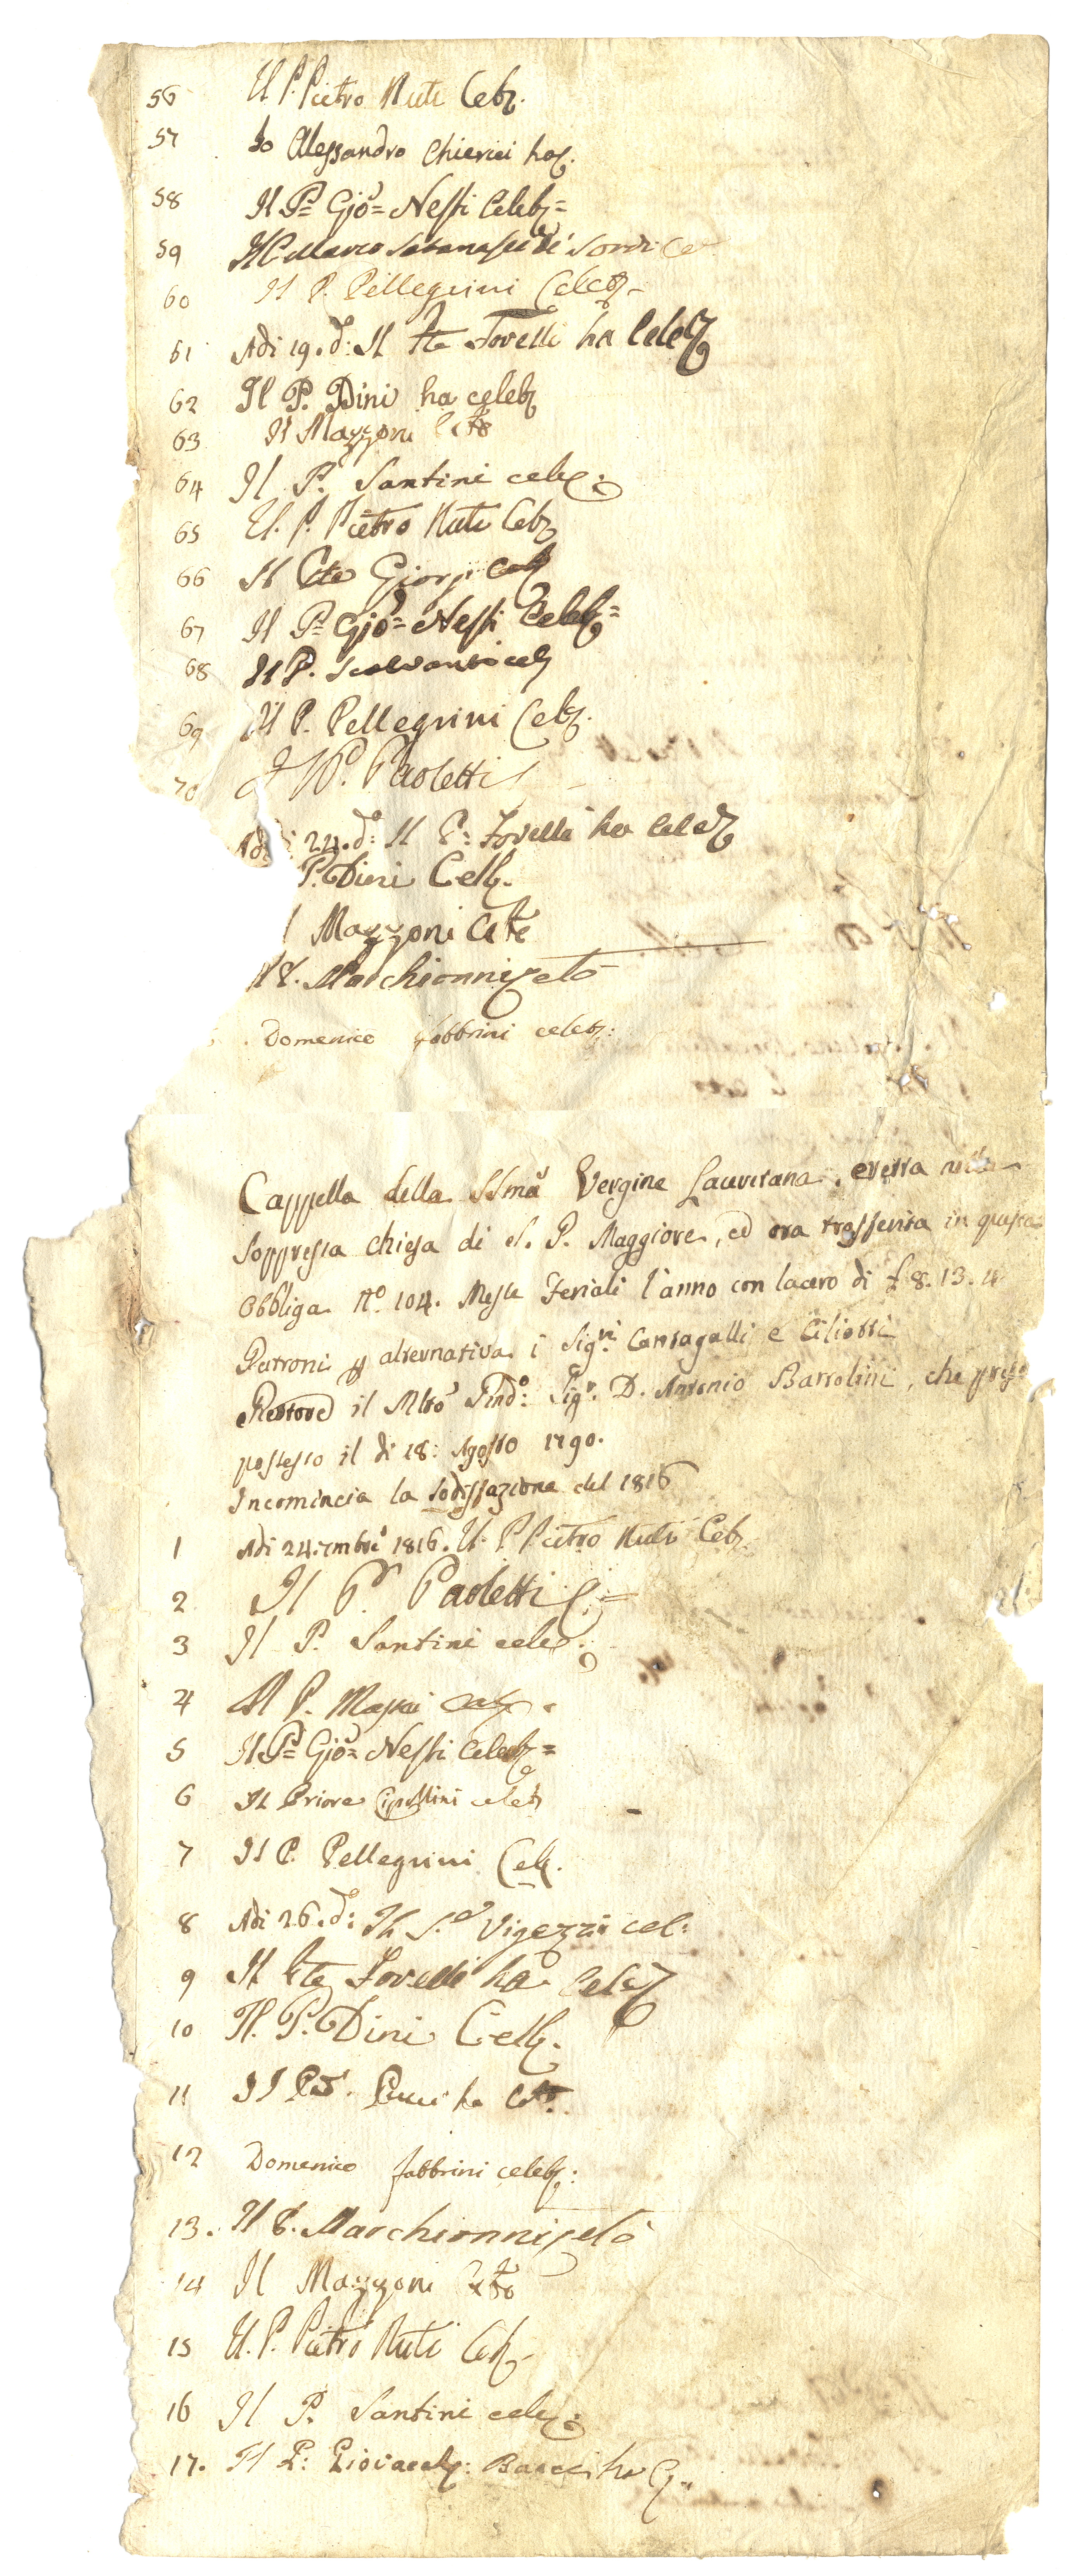 56 Il P. Pietro Nuti Celeb.
57 Io Alessandro Chierici ho C.
58 Il P= Gio= Nesti Celeb=
59 Il Marco de' Sordi Ce
60 Il P. Pellegrini Celeb.
61 Adi 19. d: Il Pte Tovelli ha Celeb
62 Il P. Dini ha celeb
63 Il Mazzoni Ceto
64 Il P. Santini celeb:
65 Il. P. Pietro Nuti Celeb
66 Il Cte Giorgi Celeb
67 Il P= Gio= Nesti Celeb=
68 Il P. Scalvanti celeb
69 Il P. Pellegrini Celeb.
70 Il P. Paoletti
Adi 24. d: Il P: Tovelli ha celeb
P. Dini Celb.
l Mazzoni Ceto
Il P. Marchionni celò
Domenico fabbrini celeb:
Cappella della SSma Vergine Lauretana, eretta nella
soppressa chiesa di S. P. Maggiore, ed ora trasferita in questa
Obbliga No. 104. Messe Feriali l'anno con lacero di £ 8. 13. 4
Patroni p alternativa i Sigri. Cantagalli e Ciliotti
Rettore il Mlto Rndo: Sigr. D. Antonio Bartolini, che prese
possesso il di 18: Agosto 1790.
Incomincia la sodisfazione del 1816
1 Adi 24. 7mbre 1816. Il. P. Pietro Nuti Celeb.
2 Il Pr. Paoletti C.=
3 Il P. Santini celeb:
4 Il P. Massai Celeb.
5 Il P= Gio= Nesti Celeb=
6 Il Priore Cipollini celeb
7 Il P. Pellegrini Celeb.
8 Adi 26. d: Il S.e Vigezzi cel:
9 Il Pte Tovelli ha Celeb
10 Il. P. Dini Celb.
11 Il Pre. Pucci ha Ceto.
12 Domenico fabbrini celeb:
13. Il P. Marchionni celò
14 Il Mazzoni Ceto
15 Il. P. Pietro Nuti Celeb.
16 Il P. Santini celeb:
17. Il P: Giovacch: Bacci ha C.